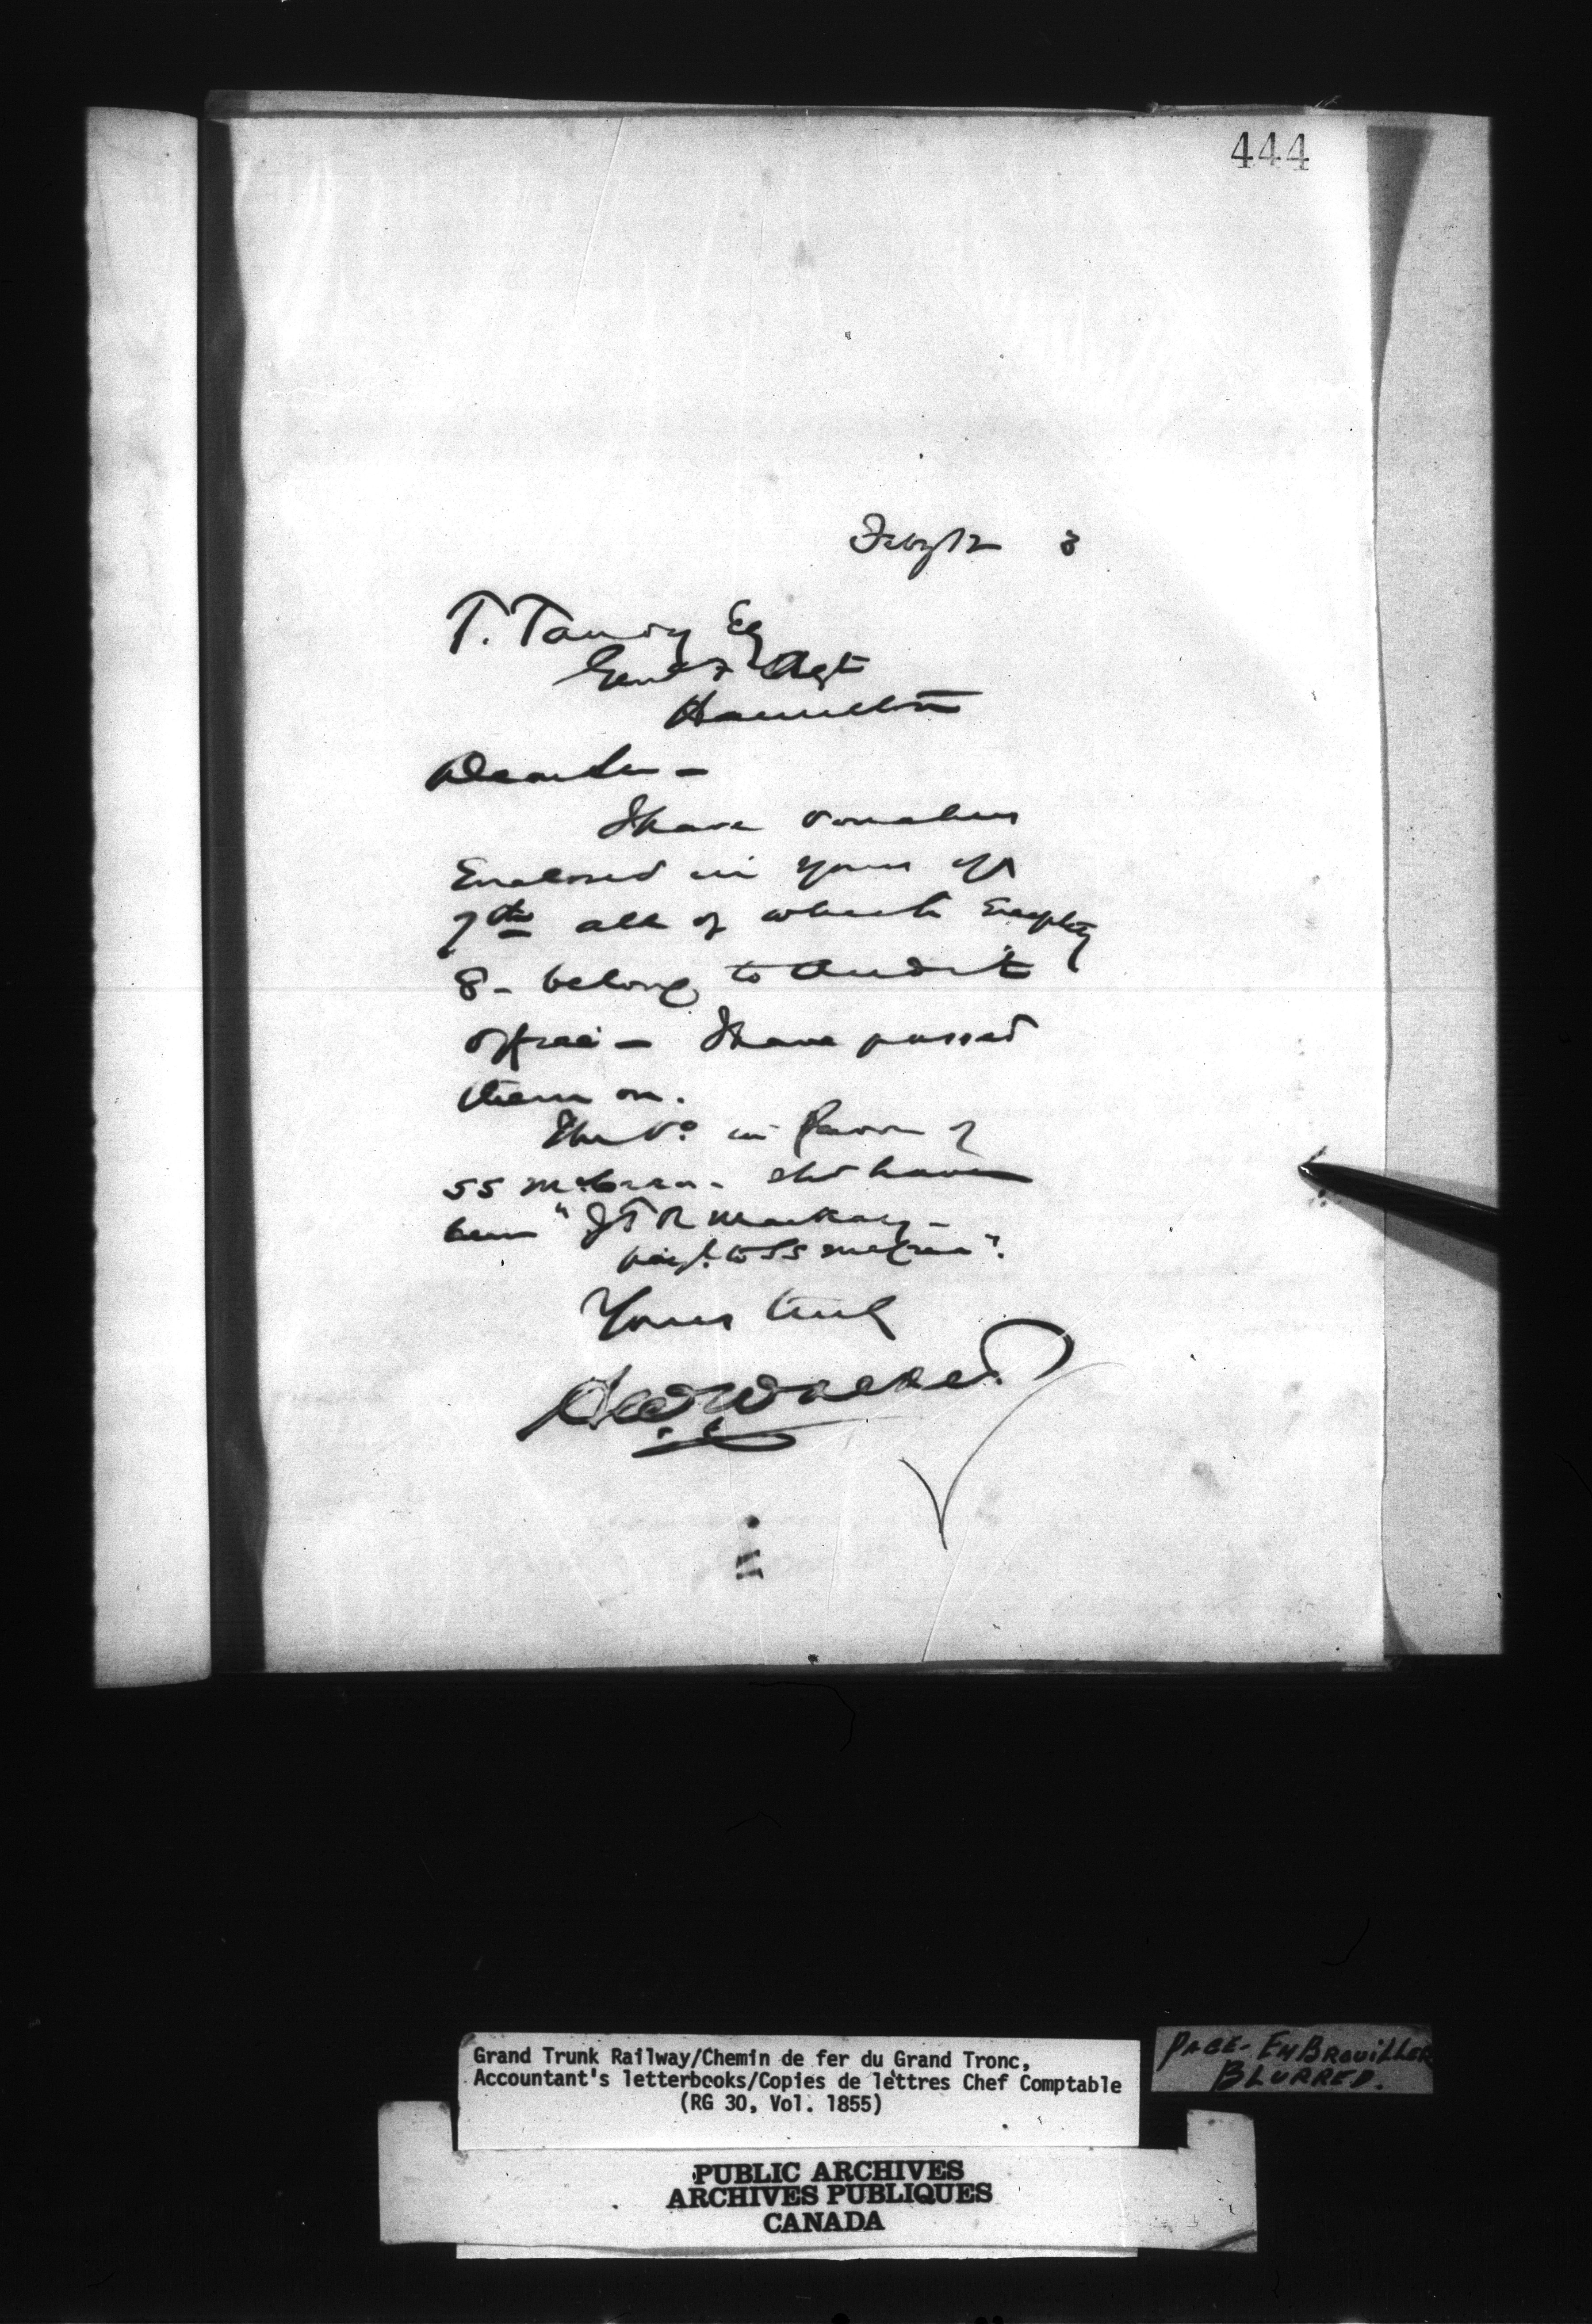 444
Feby 12 8
T. Tandy Esq
Genl F Agt
Hamilton
Dear Sir –
I have vouchers
Enclosed in yours of
7th all of which Excepting
8 – belong to Audit
Office – I have passed
them on.
The Vo in favor of
SS McCrea – shd have
been "J T R Mackay –
pay't to SS McCrea".
Yours truly
Walker
Grand Trunk Railway/Chemin de fer du Grand Tronc,
Accountant's letterbooks/Copies de lettres Chef Comptable
(RG 30, Vol. 1855)
PAGE - EMBROUILLER
BLURRED.
PUBLIC ARCHIVES
ARCHIVES PUBLIQUES
CANADA